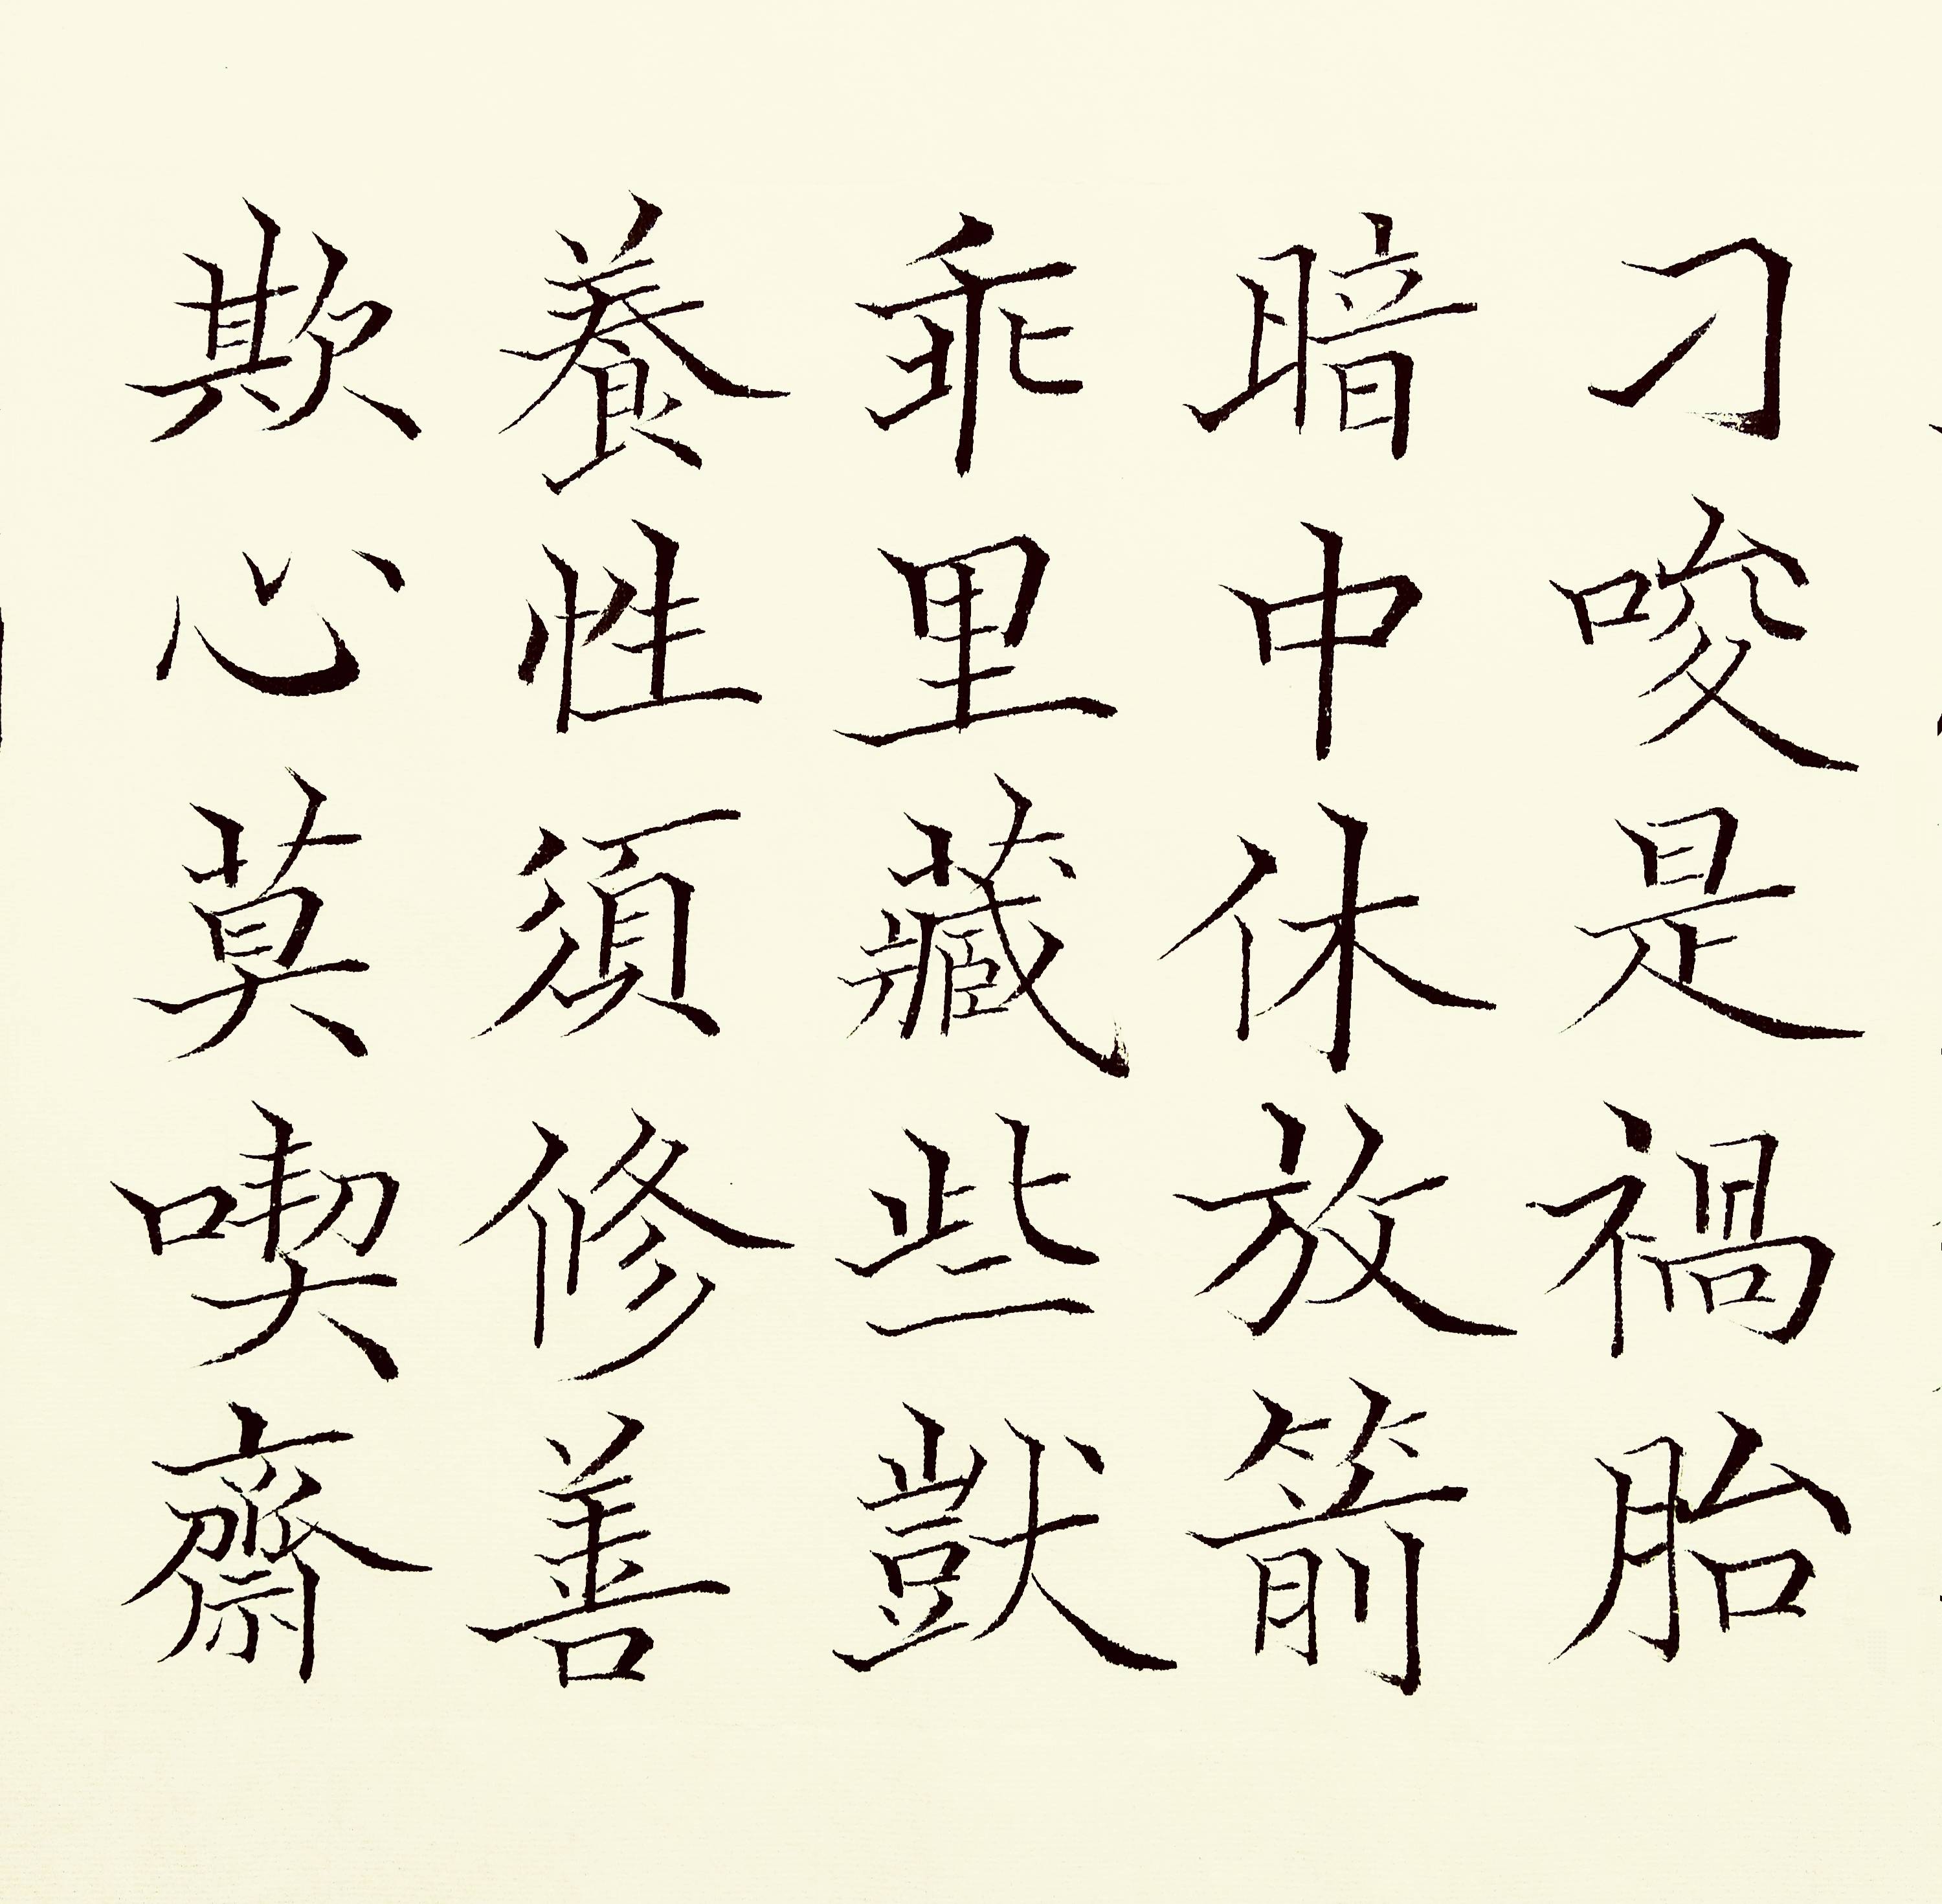 刁唆是禍胎
暗中休放箭
乖里藏些獃
養性須修善
欺心莫喫齋